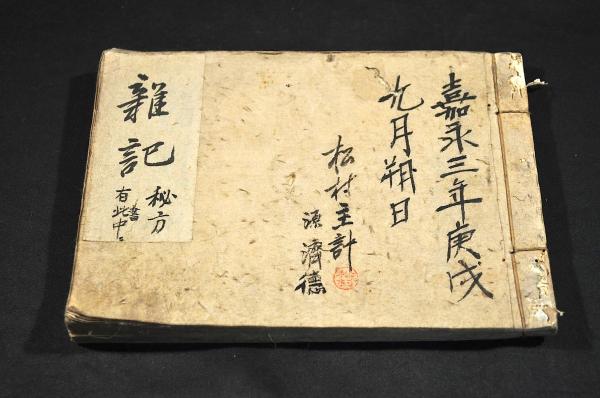 嘉永三年庚戌
九月朔日
松村主計
源濟德
雜記
秘方
有此書中